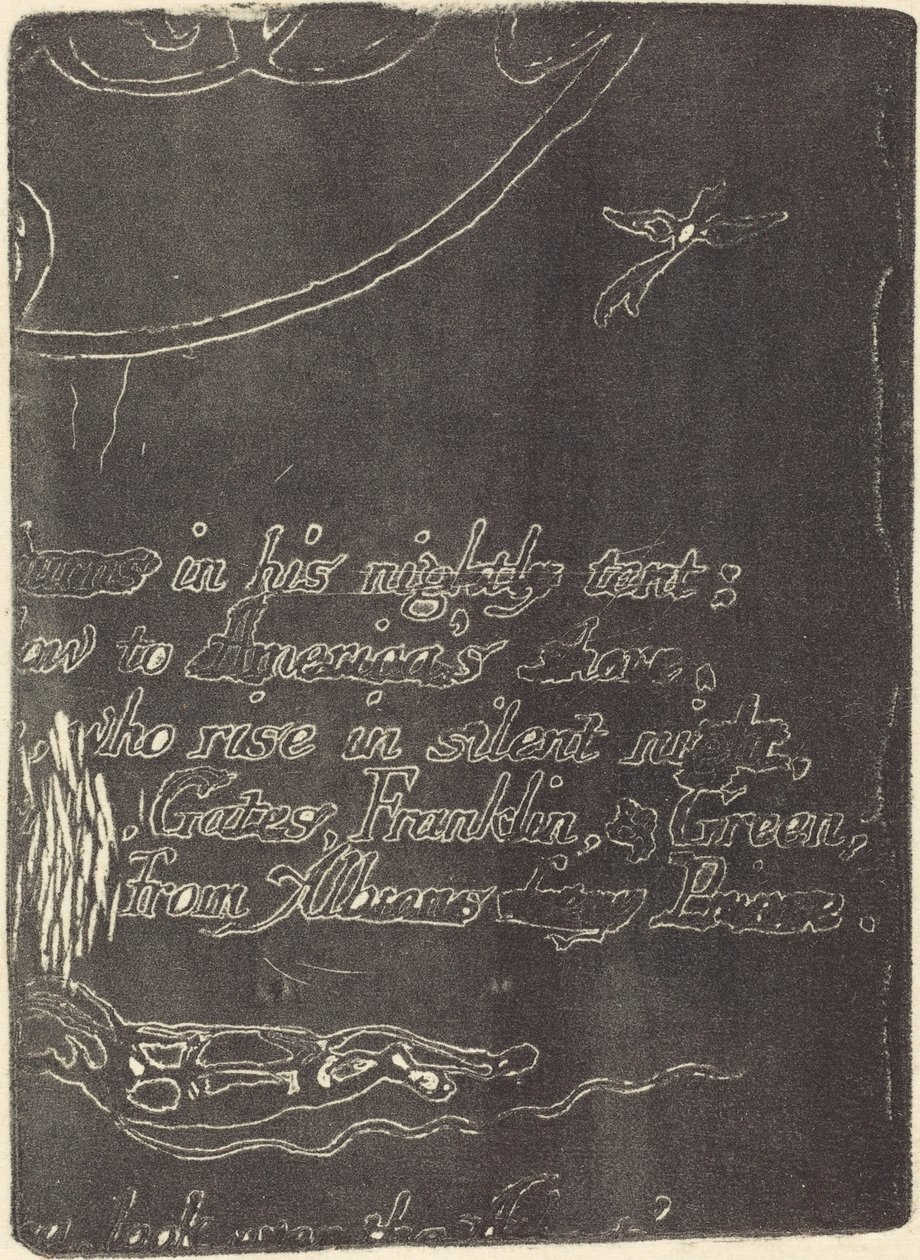 urns in his nightly tent:
low to America's shore;
who rise in silent night,
, Gates, Franklin, & Green;
from Albions fiery Prince.
look over the